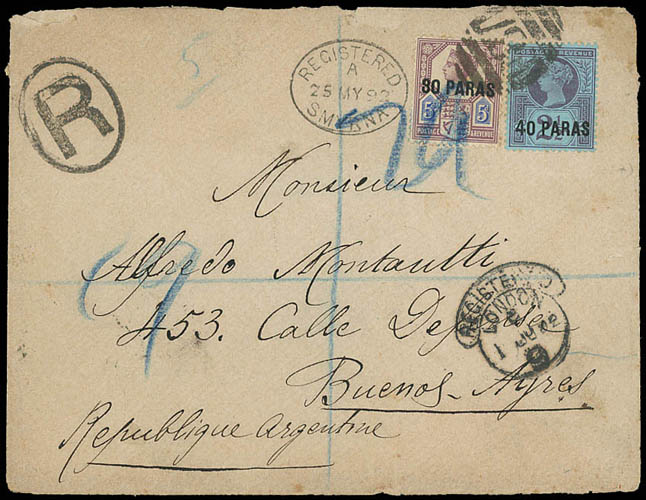 R
5
REGISTERED
A
25 MY 92
SMYRNA
80 PARAS
5 5
POSTAGE & REVENUE
POSTAGE REVENUE
40 PARAS
2½
Monsieur
Alfredo Montautti
453. Calle
Buenos-Ayres
Republique Argentine
REGISTERED
LONDON
1 JU 92
9